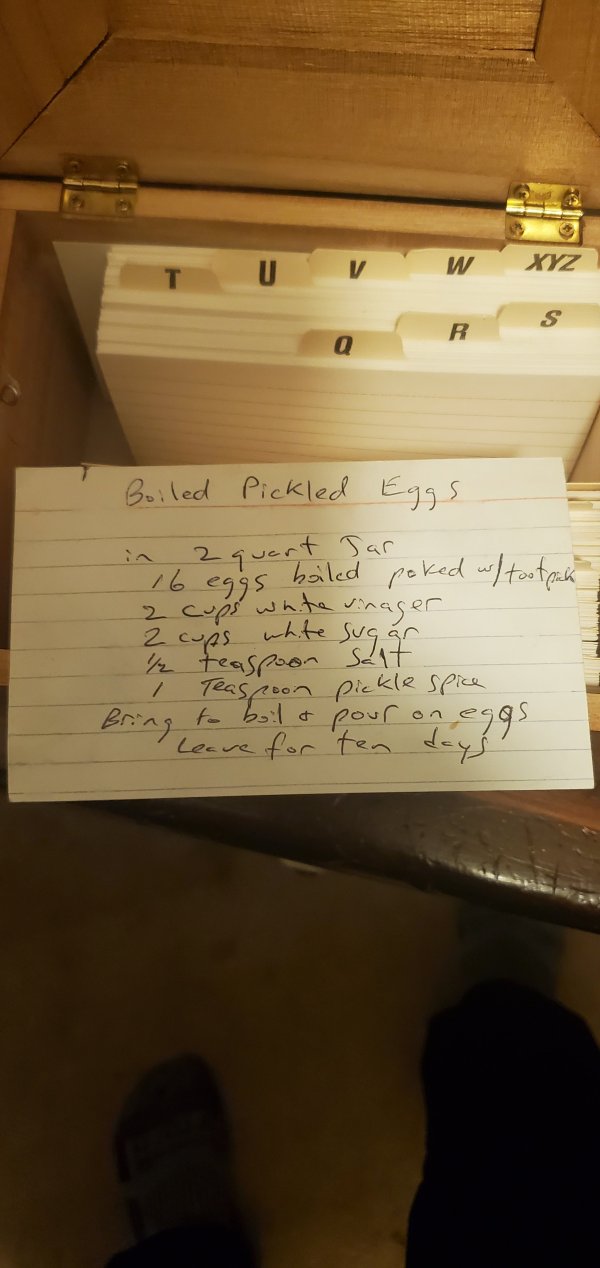 T U V W XYZ
Q R S
Boiled Pickled Eggs
in 2 quart Jar
16 eggs boiled poked w/tootpick
2 cups white vinager
2 cups white sugar
1/2 teaspoon Salt
1 Teaspoon pickle spice
Bring to boil & pour on eggs
Leave for ten days